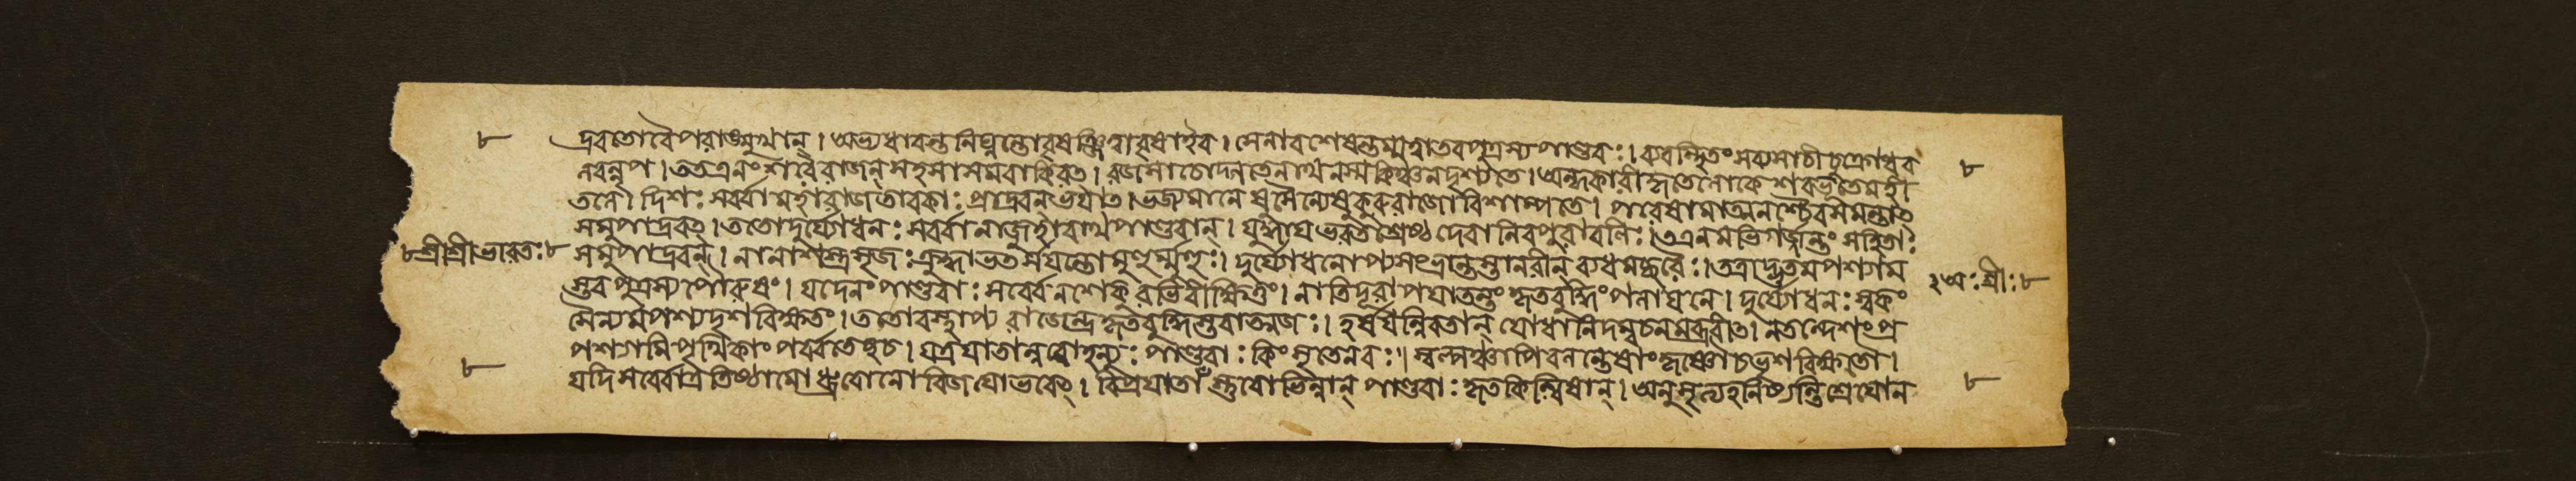 দ্রবতো বৈ পরাঙ্মুখান্ । অভ্যধাবন্ত নিঘ্নন্তো বৃষঞ্জিত্বা বৃষাইব । সেনাবশেষন্তন্দৃষ্ট্বা তব পুত্রস্য পাণ্ডবঃ । ব্যবস্থিতং সব্যসাচী চুক্রোধ বল
বন্নৃপ । তত এনং শরৈ রাজন্ সহসা সমবাকিরত্ । রজসা চোদ্গতেনাথ নস্ম কিঞ্চন দৃশ্যতে । অন্ধকারীকৃতে লোকে শরভূতে মহী
তলে । দিশঃ সর্ব্বা মহারাজ তাবকাঃ প্রাদ্রবন্ ভয়াত্ । ভজ্যমানেষু সৈন্যেষু কুরুরাজো বিশাম্পতে । পরেষামাত্মনশ্চৈব সমন্তাত্
সমুপাদ্রবত্ । ততো দুর্য্যোধনঃ সর্ব্বানাজুহাবাথ পাণ্ডবান্ । যুদ্ধায় ভরতশ্রেষ্ঠ দেবানিব পুরা বলিঃ । ত এনমভিগর্জ্জন্তং সহিতাঃ
৮ শ্রীশ্রীভারতঃ ৮ সমুপাদ্রবন্ । নানাশস্ত্রসৃজঃ ক্রুদ্ধা ভর্ত্সয়ন্তো মুহুর্ম্মুহুঃ । দুর্য্যোধনোপ্যসংভ্রান্তস্তানরীন্ ব্যধমচ্ছরৈঃ । তত্রাদ্ভুতমপশ্যাম
স্তব পুত্রস্য পৌরুষং । যদেনং পাণ্ডবাঃ সর্ব্বে ন শেকুরতিবীক্ষিতুং । নাতিদূরাপযাতন্তং কৃতবুদ্ধিং পলায়নে । দুর্য্যোধনঃ স্বকং ২ অঃ শ্রীঃ ৮
সৈন্যমপশ্যদ্ভৃশবিক্ষতং । ততোবস্থাপ্য রাজেন্দ্র কৃতবুদ্ধিস্তবাত্মজঃ । হর্ষয়ন্নিব তান্ যোধানিদম্বচনমব্রবীত্ । ন তন্দেশং প্র
পশ্যামি পৃথিব্যাং পর্ব্বতেষু চ । যত্র যাতান্ন বো হন্যুঃ পাণ্ডবাঃ কিং সৃতেন বঃ । স্বল্পঞ্চাপি বলন্তেষাং কৃষ্ণৌ চ ভৃশবিক্ষতৌ ।
যদি সর্ব্বেত্র তিষ্ঠামো ধ্রুবো নো বিজয়ো ভবেত্ । বিপ্রযাতাঁস্তু বো ভিন্নান্ পাণ্ডবাঃ কৃতকিল্বিষান্ । অনুসৃত্য হনিষ্যন্তি শ্রেয়ো ন